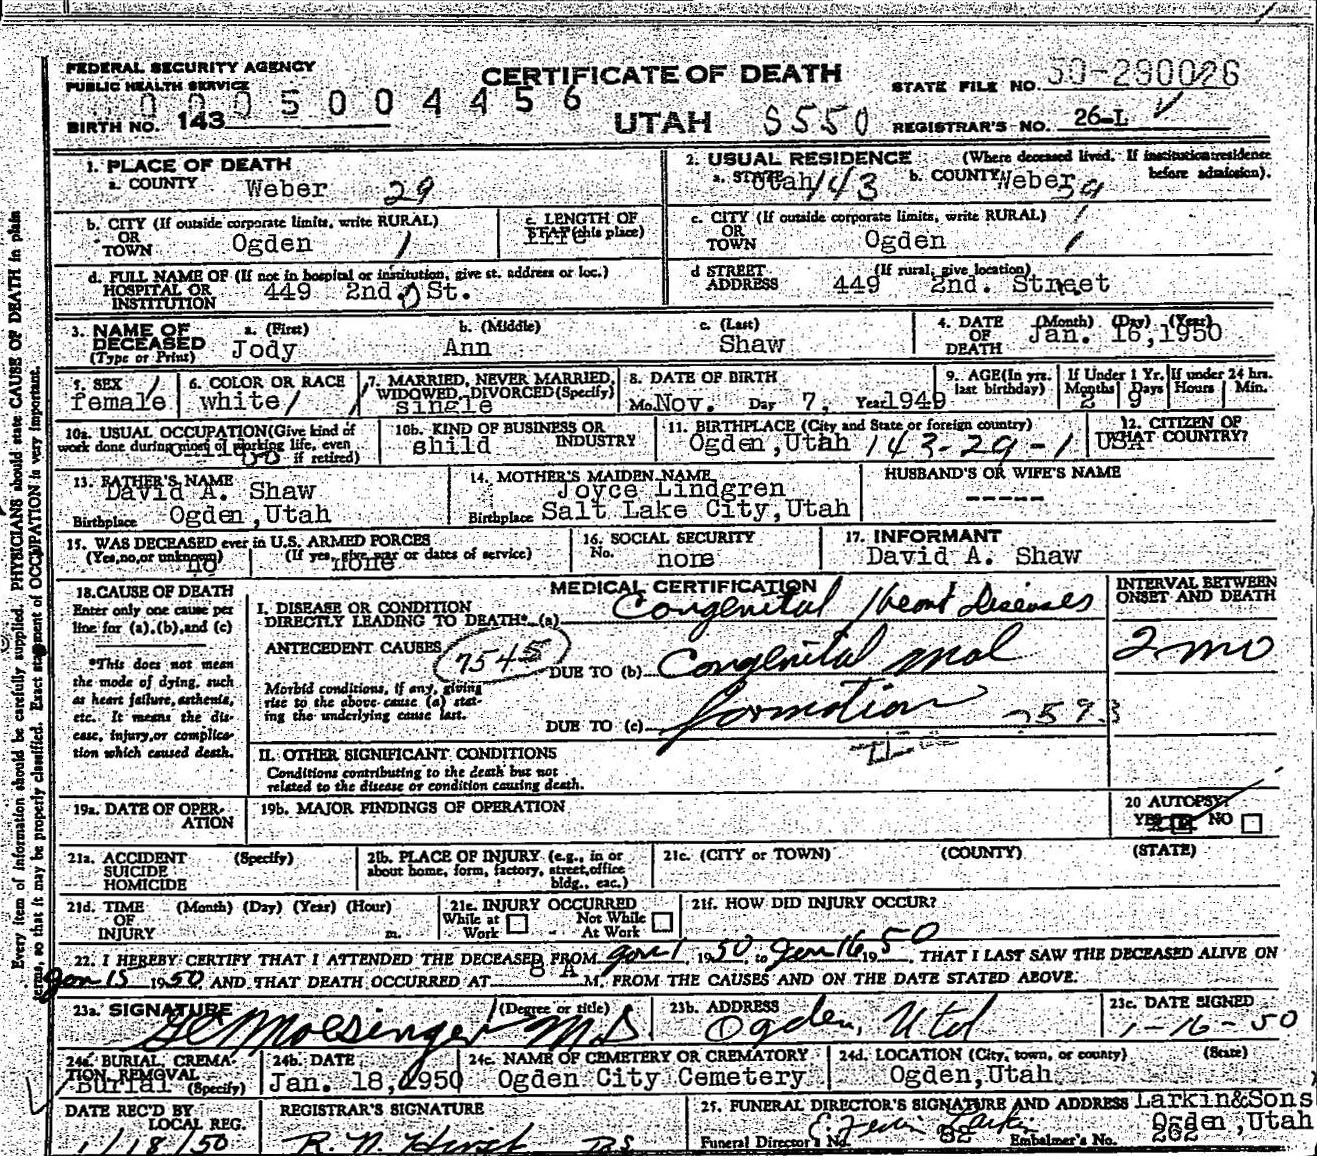 FEDERAL SECURITY AGENCY
PUBLIC HEALTH SERVICE
CERTIFICATE OF DEATH
STATE FILE NO. 50-290026
0005004456
BIRTH NO. 143
UTAH S550
REGISTRAR'S NO. 26-L
1. PLACE OF DEATH
a. COUNTY Weber 29
2. USUAL RESIDENCE (Where deceased lived. If institution: residence before admission).
a. STATE Utah 143 b. COUNTY Weber
b. CITY (If outside corporate limits, write RURAL)
OR
TOWN Ogden 1
c. LENGTH OF
STAY (this place)
life
c. CITY (If outside corporate limits, write RURAL)
OR
TOWN Ogden 1
d. FULL NAME OF (If not in hospital or institution, give st. address or loc.)
HOSPITAL OR
INSTITUTION 449 2nd. St.
d STREET (If rural, give location)
ADDRESS 449 2nd. Street
3. NAME OF DECEASED (Type or Print)
a. (First) b. (Middle) c. (Last)
Jody Ann Shaw
4. DATE OF DEATH (Month) (Day) (Year)
Jan. 16,1950
5. SEX
female
6. COLOR OR RACE
white
7. MARRIED, NEVER MARRIED, WIDOWED, DIVORCED (Specify)
single
8. DATE OF BIRTH
Mo. Nov. Day 7, Year 1949
9. AGE (In yrs. last birthday)
If Under 1 Yr. Months Days
2 9
If under 24 hrs. Hours Min.
10a. USUAL OCCUPATION (Give kind of work done during most of working life, even if retired)
10b. KIND OF BUSINESS OR INDUSTRY
child
11. BIRTHPLACE (City and State or foreign country)
Ogden,Utah 143-29-1
12. CITIZEN OF WHAT COUNTRY?
USA
13. FATHER'S NAME
David A. Shaw
Birthplace Ogden,Utah
14. MOTHER'S MAIDEN NAME
Joyce Lindgren
Birthplace Salt Lake City,Utah
HUSBAND'S OR WIFE'S NAME
-----
15. WAS DECEASED ever in U.S. ARMED FORCES
(Yes, no, or unknown) (If yes, give war or dates of service)
no none
16. SOCIAL SECURITY
No. none
17. INFORMANT
David A. Shaw
18. CAUSE OF DEATH
Enter only one cause per
line for (a), (b), and (c)
*This does not mean
the mode of dying, such
as heart failure, asthenia,
etc. It means the dis-
ease, injury, or complica-
tion which caused death.
MEDICAL CERTIFICATION
I. DISEASE OR CONDITION
DIRECTLY LEADING TO DEATH*. (a) Congenital Heart Diseases
ANTECEDENT CAUSES 7545
DUE TO (b) Congenital mal
Morbid conditions, if any, giving
rise to the above cause (a) stat-
ing the underlying cause last.
DUE TO (c) formation 7593
INTERVAL BETWEEN
ONSET AND DEATH
2 mo
II. OTHER SIGNIFICANT CONDITIONS
Conditions contributing to the death but not
related to the disease or condition causing death.
19a. DATE OF OPER-
ATION
19b. MAJOR FINDINGS OF OPERATION
20 AUTOPSY?
YES NO
21a. ACCIDENT (Specify)
SUICIDE
HOMICIDE
21b. PLACE OF INJURY (e.g., in or
about home, form, factory, street, office
bldg., eac.)
21c. (CITY or TOWN) (COUNTY) (STATE)
21d. TIME (Month) (Day) (Year) (Hour)
OF
INJURY m.
21e. INJURY OCCURRED
While at Not While
Work At Work
21f. HOW DID INJURY OCCUR?
22. I HEREBY CERTIFY THAT I ATTENDED THE DECEASED FROM Jan 1, 1950, to Jan 16 1950, THAT I LAST SAW THE DECEASED ALIVE ON
Jan 15 1950 AND THAT DEATH OCCURRED AT 8 A M, FROM THE CAUSES AND ON THE DATE STATED ABOVE.
23a. SIGNATURE (Degree or title)
Moesinger M.D
23b. ADDRESS
Ogden, Utah
23c. DATE SIGNED
1-16-50
24a. BURIAL, CREMA-
TION, REMOVAL (Specify)
Burial
24b. DATE
Jan. 18,1950
24c. NAME OF CEMETERY OR CREMATORY
Ogden City Cemetery
24d. LOCATION (City, town, or county) (State)
Ogden,Utah
DATE REC'D BY
LOCAL REG.
1/18/50
REGISTRAR'S SIGNATURE
R. N. Hirst
25. FUNERAL DIRECTOR'S SIGNATURE AND ADDRESS Larkin&Sons
Ogden,Utah
Funeral Director's No. 82 Embalmer's No. 262
Every item of information should be carefully supplied. PHYSICIANS should state CAUSE OF DEATH in plain
terms, so that it may be properly classified. Exact statement of OCCUPATION is very important.